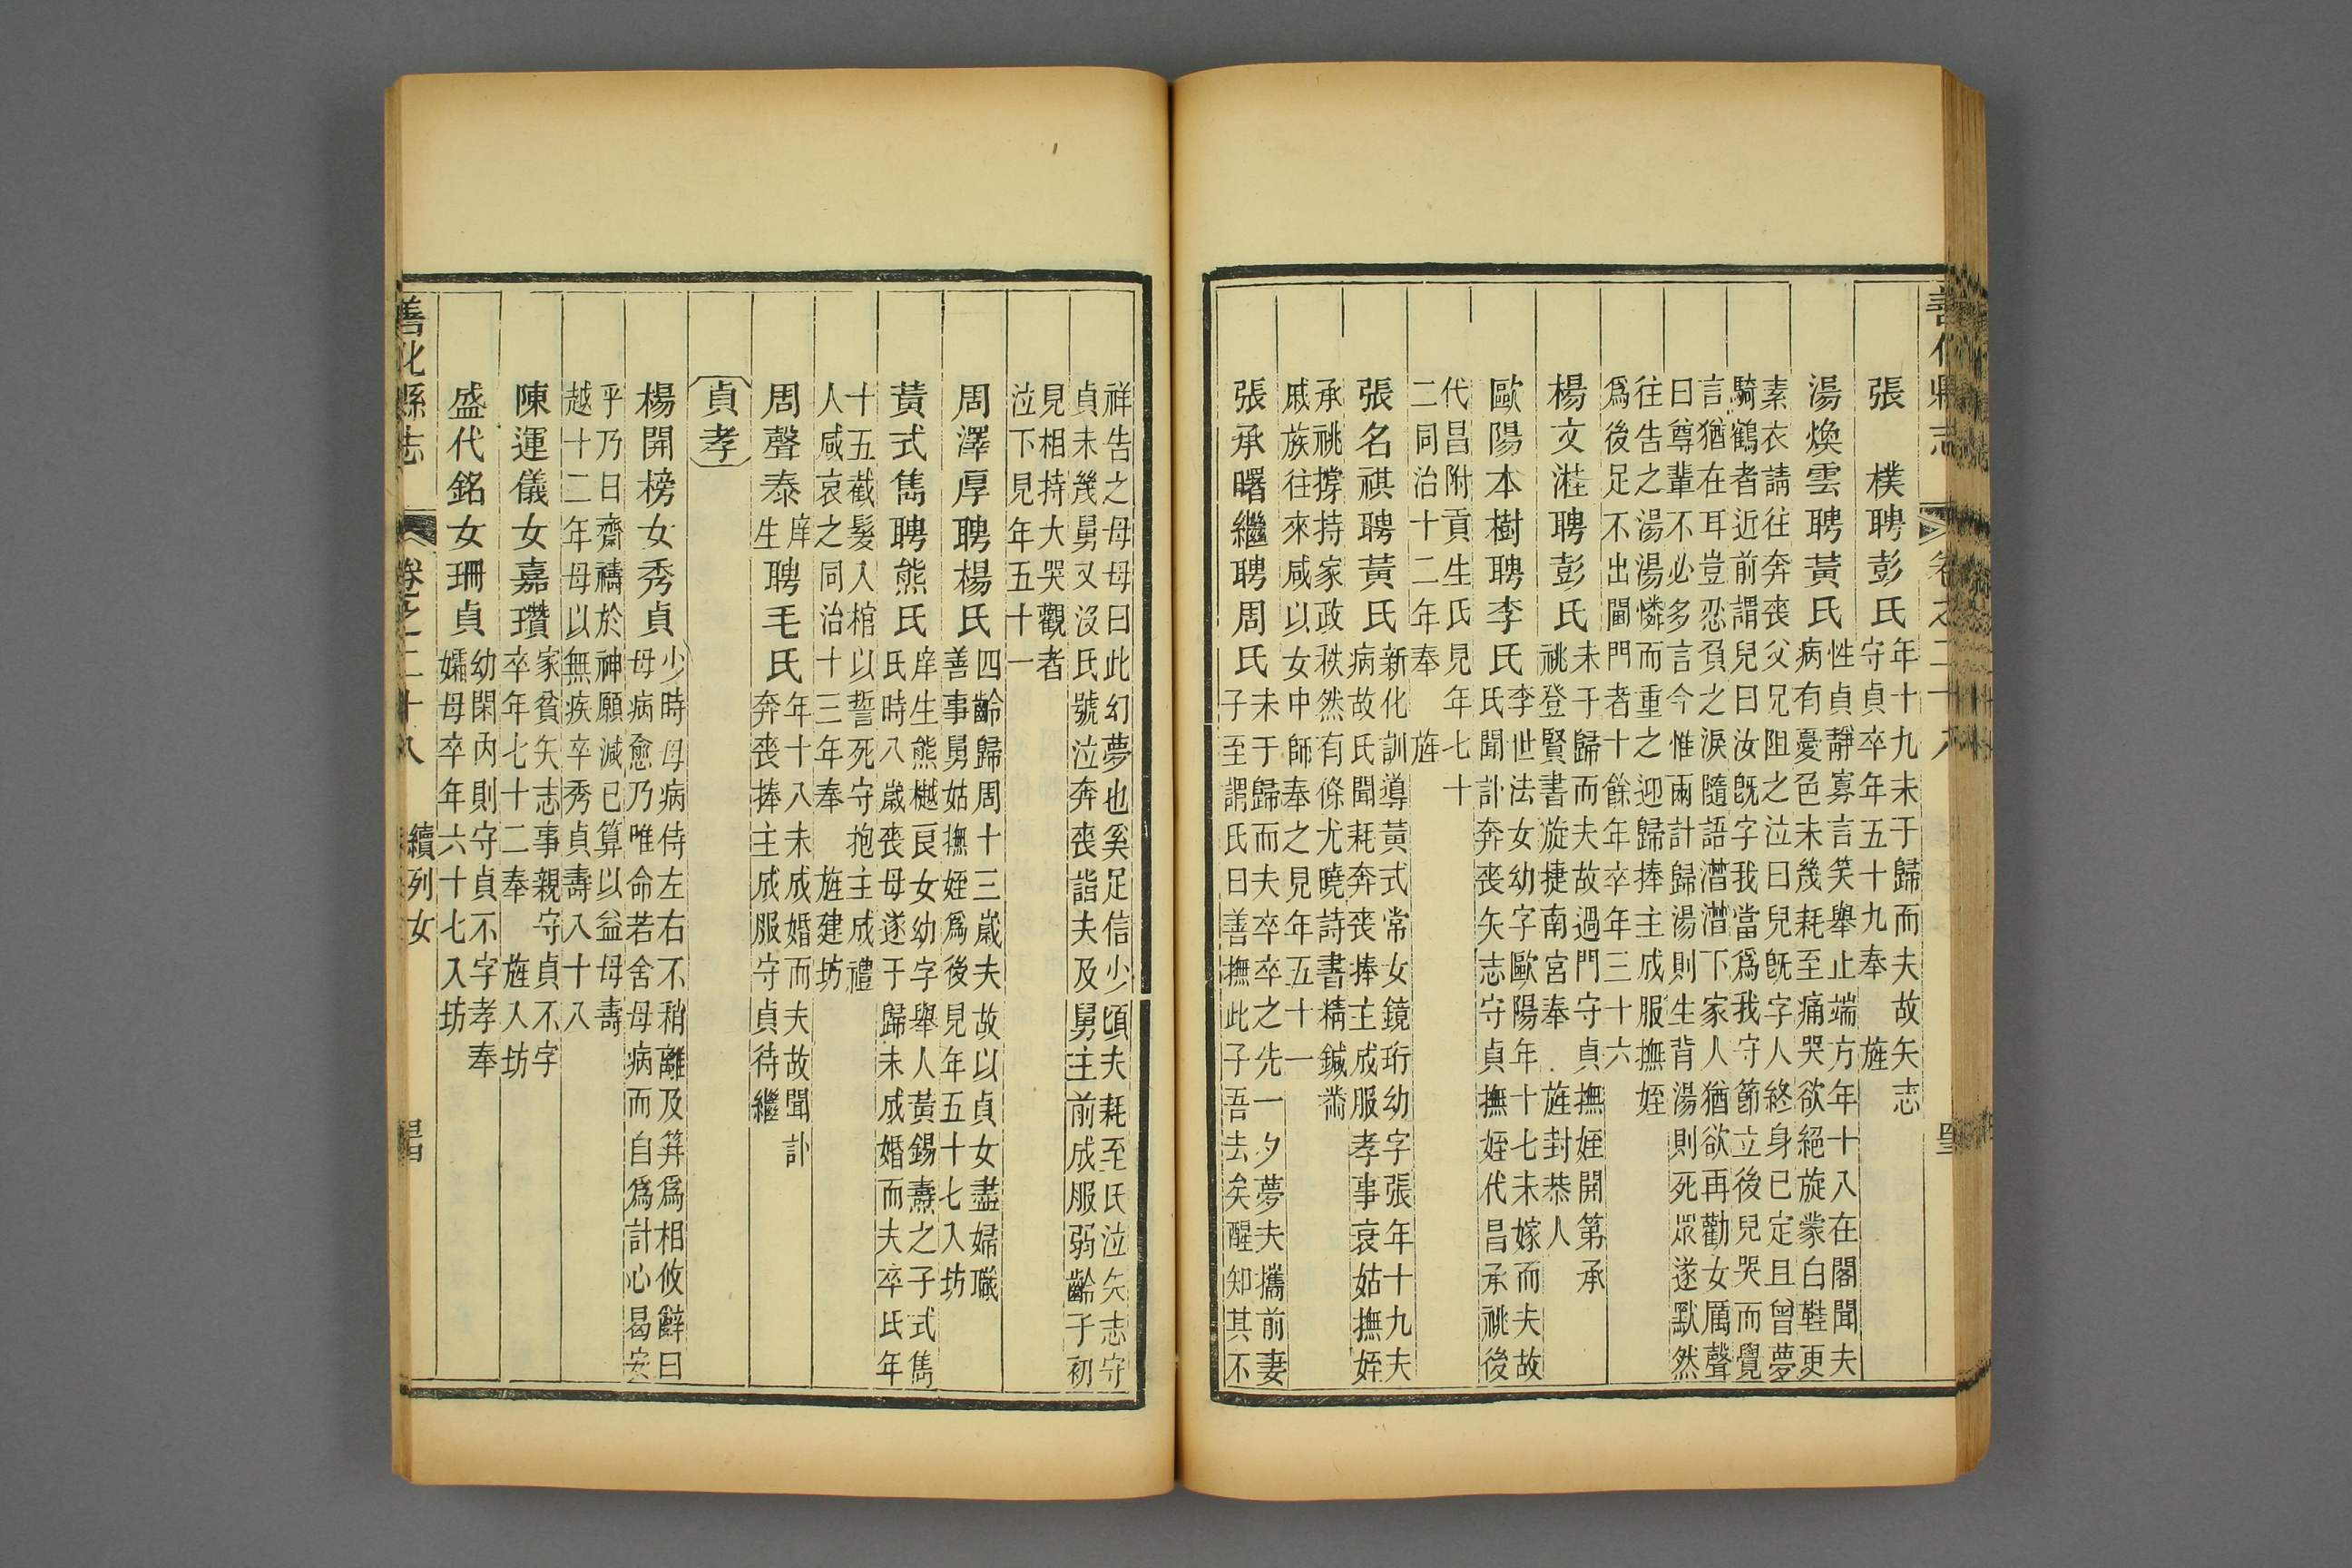 善化縣志 卷之二十八
張 樸聘彭氏
年十九未于歸而夫故矢志
守貞卒年五十九奉 旌
湯煥雲聘黃氏
性貞靜寡言笑舉止端方年十八在閣聞夫
病有憂色未幾耗至痛哭欲絕旋蒙白鞋更
素衣請往奔喪父兄阻之泣曰兒旣字人終身已定且曾夢
騎鶴者近前謂兒曰汝旣字我當爲我守節立後兒哭而覺
言猶在耳豈忍負之淚隨語濳濳下家人猶欲再勸女厲聲
曰尊輩不必多言今惟兩計歸湯則生背湯則死眾遂默然
往告之湯湯憐而重之迎歸捧主成服撫姪
爲後足不出閫門者十餘年卒年三十六
楊文溎聘彭氏
未于歸而夫故過門守貞撫姪開第承
祧登賢書旋捷南宮奉 旌封恭人
歐陽本樹聘李氏
李世法女幼字歐陽年十七未嫁而夫故
氏聞訃奔喪矢志守貞撫姪代昌承祧後
代昌附貢生氏見年七十
二同治十二年奉 旌
張名祺聘黃氏
新化訓導黃式常女鏡珩幼字張年十九夫
病故氏聞耗奔喪捧主成服孝事哀姑撫姪
承祧撐持家政秩然有條尤曉詩書精鍼黹
戚族往來咸以女中師奉之見年五十一
張承曙繼聘周氏
未于歸而夫卒卒之先一夕夢夫攜前妻
子至謂氏曰善撫此子吾去矣醒知其不
祥告之母母曰此幻夢也奚足信少頃夫耗至氏泣矢志守
貞未幾舅又沒氏號泣奔喪詣夫及舅主前成服弱齡子初
見相持大哭觀者
泣下見年五十一
周澤厚聘楊氏
四齡歸周十三歲夫故以貞女盡婦職
善事舅姑撫姪爲後見年五十七入坊
黃式雋聘熊氏
庠生熊樾艮女幼字舉人黃錫燾之子式雋
氏時八歲喪母遂于歸未成婚而夫卒氏年
十五截髮入棺以誓死守抱主成禮
人咸哀之同治十三年奉 旌建坊
周聲泰庠生聘毛氏
年十八未成婚而夫故聞訃
奔喪捧主成服守貞待繼
貞孝
楊開榜女秀貞
少時母病侍左右不稍離及筓爲相攸辭曰
母病愈乃唯命若舍母病而自爲計心曷安
乎乃日齋禱於神願減已算以益母壽
越十二年母以無疾卒秀貞壽八十八
陳運儀女嘉瓚
家貧矢志事親守貞不字
卒年七十二奉 旌入坊
盛代銘女珊貞
幼閑內則守貞不字孝奉
孀母卒年六十七入坊
善化縣志 卷之二十八 續列女